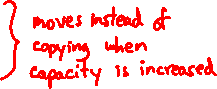 moves instead of
copying when
capacity is increased